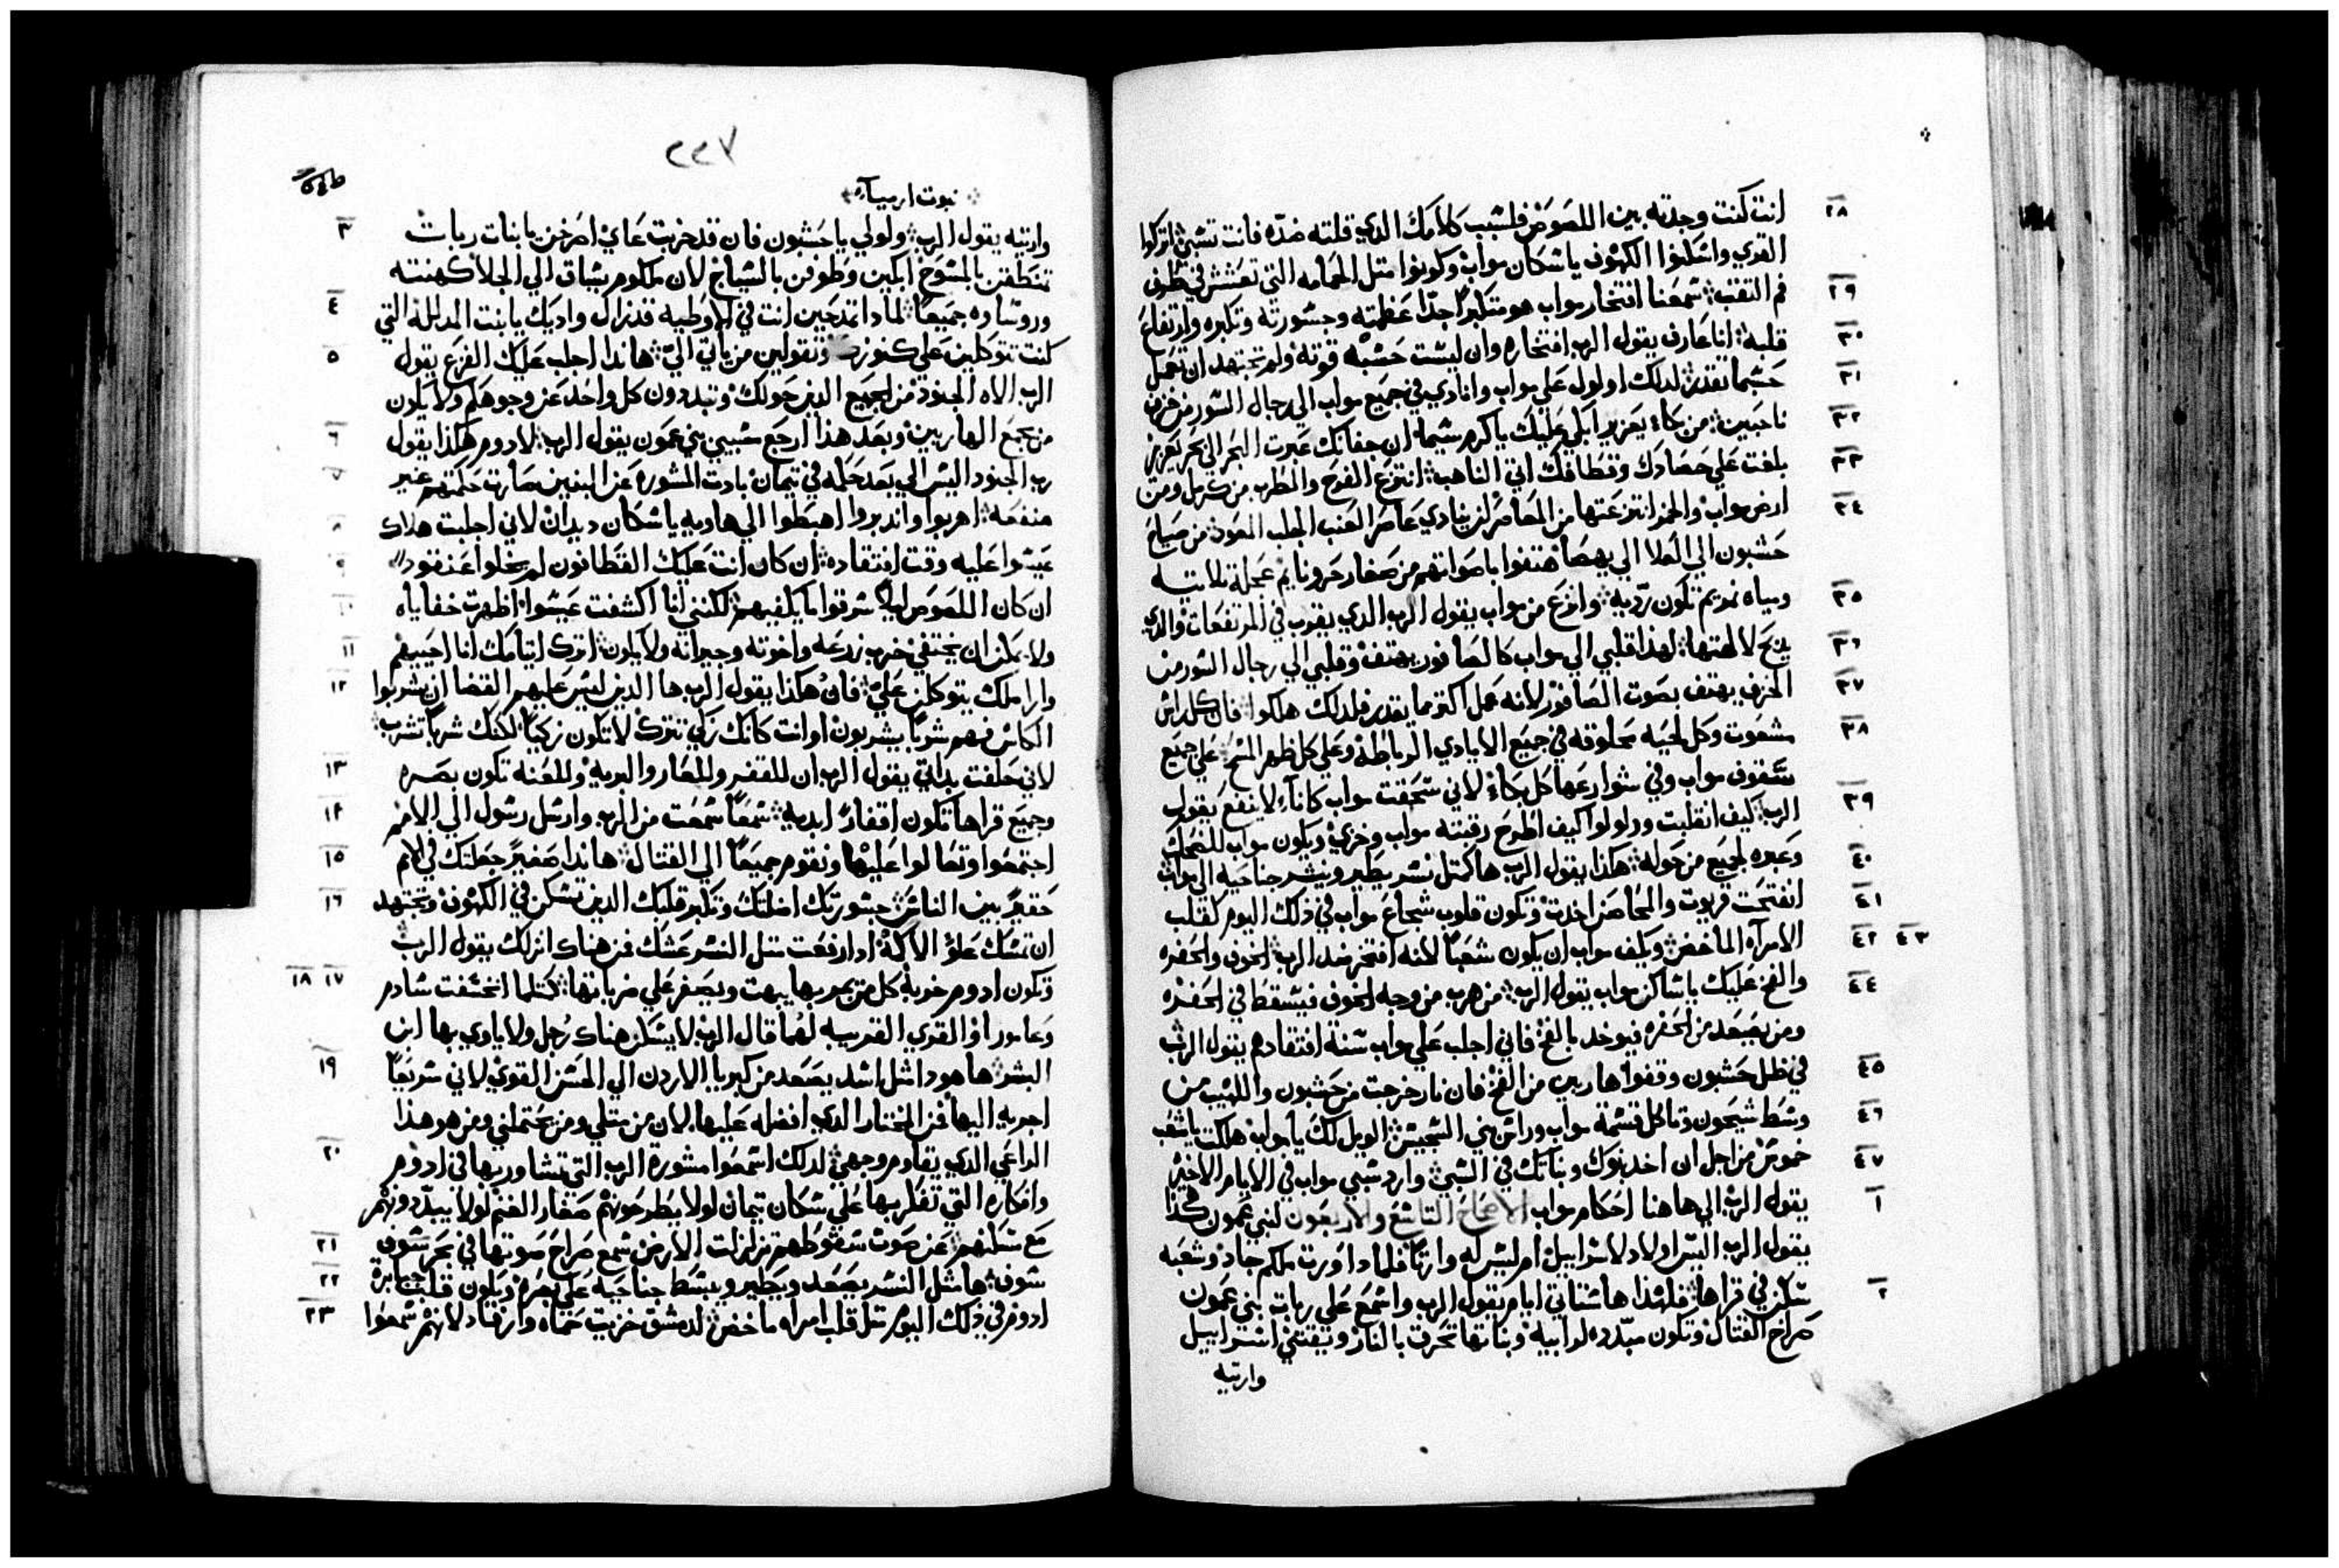 ٢٨ انت كنت وجدته بين اللصوص فلسبب كلامك الدي قلته ضده فانت تسبي اتركوا
القري واسكنوا الكهوف ياسكان مواب وكونوا متل الحمامه التي تعشش في
٢٩ فم التقب سمعنا افتخار مواب هو متكبرا جدا عظمته وجسورته وتكبره وارتفاع
٣٠ قلبه انا عارف يقول الرب افتخاره وان ليست حسبه قوته ولم تجتهد ان تعمل
٣١ حسبما تقدر لدلك اولول علي مواب وانادي في جميع مواب الي رجال السور من خزف
٣٢ ناحبين من بكاء يعزير ابكي عليك ياكرم سبما ان جفانك عبرت البحر الي بحر يعزير
٣٣ بلغت علي حصادك وقطافك اتي الناهب انتزع الفرح والطرب من كرمل ومن
٣٤ ارض مواب والخمر انتزعتها من المعاصر لن ينادي عاصر العنب الجلب المعود من صياح
حشبون الي العلا الي يهصا هتفوا باصواتهم من صغار حرونايم عجلة تلاتيه
٣٥ ومياه نمريم تكون رديه وانزع من مواب يقول الرب الدي يقرب في المرتفعات والدي
٣٦ يدبح لالهتها لهدا قلبي الي مواب كالصافور يهتف وقلبي الي رجال السور من
٣٧ الخزف يهتف بصوت الصافور لانه عمل اكتر مما يقدر فلدلك هلكوا فان كل راس
٣٨ مشعوت وكل لحيه محلوقه في جميع الايادي الرباطة وعلي كل ظهر المسح علي جميع
سقوف مواب وفي شوارعها كل بكاء لاني سحقت مواب كاناء لا ينفع يقول
٣٩ الرب كيف انقلبت وولولوا كيف اطرح رقبته مواب وخزي ويكون مواب للضحك
٤٠ وعبره لجميع من حوله هكذا يقول الرب ها كمتل نسر يطير وينشر جناحيه الي مواب
٤١ انفتحت قريوت والمحاصن اخدت وتكون قلوب شجاع مواب في ذلك اليوم كقلب
٤٢ ٤٣ الامرآه الماخض ويكف مواب ان يكون شعبا لانه افتخر ضد الرب الخوف والحفره
٤٤ والفخ عليك ياساكن مواب يقول الرب من هرب من وجه الخوف فيسقط في الحفره
ومن يصعد من الحفره فيوخد بالفخ فاني اجلب علي مواب سنة افتقادهم يقول الرب
٤٥ في ظل حشبون وقفوا هاربين من الفخ فان نار خرجت من حشبون واللهيب من
٤٦ وسط شيحون وتاكل قسمة مواب وراس بني السجيس الويل لك يا مواب هلكت ياشعب
٤٧ خموش من اجل ان اخد بنوك وبناتك في السبي وارد سبي مواب في الايام الاخير
١ يقول الرب الي هاهنا احكام مواب الاصحاح التاسع والاربعون لبني عمون هكذا
يقول الرب اليس اولاد لاسراييل ام ليس له وارتا فلمادا ورت ملكم جاد وشعبه
٢ سكن في قراها فلهذا ها ستاتي ايام يقول الرب واسمع علي ربات بني عمون
صراخ القتال وتكون مبدده لرابيه وبناتها تحرق بالنار ويقتني اسراييل
وارتيه
٢٢٧
نبوت ارمياء
وارتيه يقول الرب ولولي ياحشبون فان قد خربت عاي اصرخن يابنات ربات
٣ تنتطقن بالمسوح ابكين وطوفن بالسياج لان ملكوم يساق الي الجلا كهنته
٤ وروساوه جميعا لمادا تمدحين انت في الاوطيه قد نزال واديك يابنت المدللة التي
٥ كنت تتوكلين علي كنوزك وتقولين من ياتي الي هاندا اجلب عليك الفزع يقول
الرب الاه الجنود من الجميع الدين حولك وتبددون كل واحد عن وجوهكم ولا يكون
٦ من يجمع الهاربين وبعد هذا ارجع سبيي بني عمون يقول الرب لادوم هكذا يقول
٧ رب الجنود اليس الي بعد حكمه في تيمان بادت المشوره عن البنين صارت حكمتهم غير
٨ منفعه اهربوا واندبروا اهبطوا الي هاويه ياسكان ديدان لاني اجلبت هلاك
٩ عيسوا عليه وقت افتقاده ان كان انت عليك القطافون لم يخلوا عنقود
١٠ ان كان اللصوص ليلا سرقوا ما يكفيهم لكنني انا اكشفت عيسوا اظهرت خفاياه
١١ ولا يمكن ان يختفي خرب زرعه واخوته وجيرانه ولا يكون اترك ايتامك انا احييهم
١٢ واراملك يتوكلن علي فان هكذا يقول الرب ها الدين ليس عليهم القضا ان يشربوا
الكاس فهم شربا يشربون او انت كانك زكي تترك لا تكون زكيا لكنك شربا تشرب
١٣ لاني حلفت بداتي يقول الرب ان للقفر وللعار والبريه وللعنه تكون بصره
١٤ وجميع قراها تكون اقفارا ابديه سمعا سمعت من الرب وارسل رسول الي الامم
١٥ اجتمعوا وتعالوا عليها ونقوم جميعا الي القتال هاندا صغيرا جعلتك في الامم
١٦ حقيرا بين الناس جسورتك اضلتك وتكبر قلبك الدين تسكن في الكهوف وتجتهد
ان تمسك علو الاكمة ادا رفعت متل النسر عشك فمن هناك انزلك يقول الرب
١٧ ١٨ وتكون ادوم خربة كل من يمر بها يبهت ويصفر علي ضرباتها كتلما انخسفت سادم
وعامورا والقري القريبه لهما قال الرب لا يسكن هناك رجل ولا ياوي بها ابن
١٩ البشر ها هودا متل اسد يصعد من كبريا الاردن الي الحسن القوي لاني سريعا
اجريه اليها فمن المختار الدي افضله عليها لان من متلي ومن يحتملني ومن هو هذا
٢٠ الراعي الدي يقاوم وجهي لدلك اسمعوا مشورة الرب التي تشاور بها في ادوم
وافكاره التي تفكر بها علي سكان تيمان لولا يطرحونهم صغار الغنم لولا يبددونهم
٢١ مع سكنهم عن صوت سقوطهم تزلزلت الارض سمع صراخ صوتها في بحر سوف
٢٢ سوف ها متل النسر يصعد ويطير ويبسط جناحيه علي بصره ويكون قلب جبابرة
٢٣ ادوم في ذلك اليوم متل قلب امراه ماخض لدمشق خزيت حماه وارفاد لانهم سمعوا